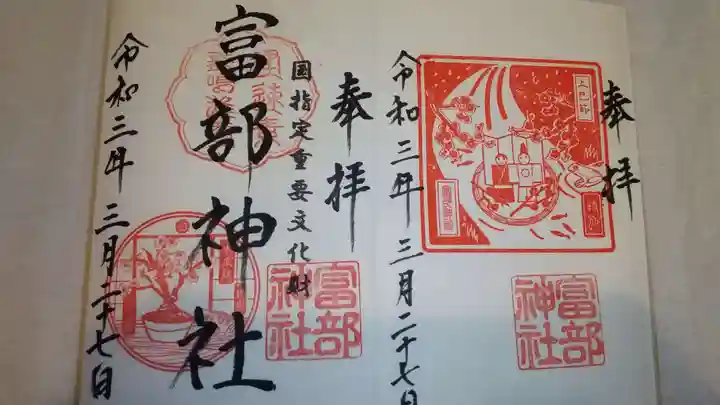 奉拝
上巳節
富部
神社
令和三年三月二十七日
奉拝
国指定重要文化財
富部神社
富部
神社
令和三年三月二十七日